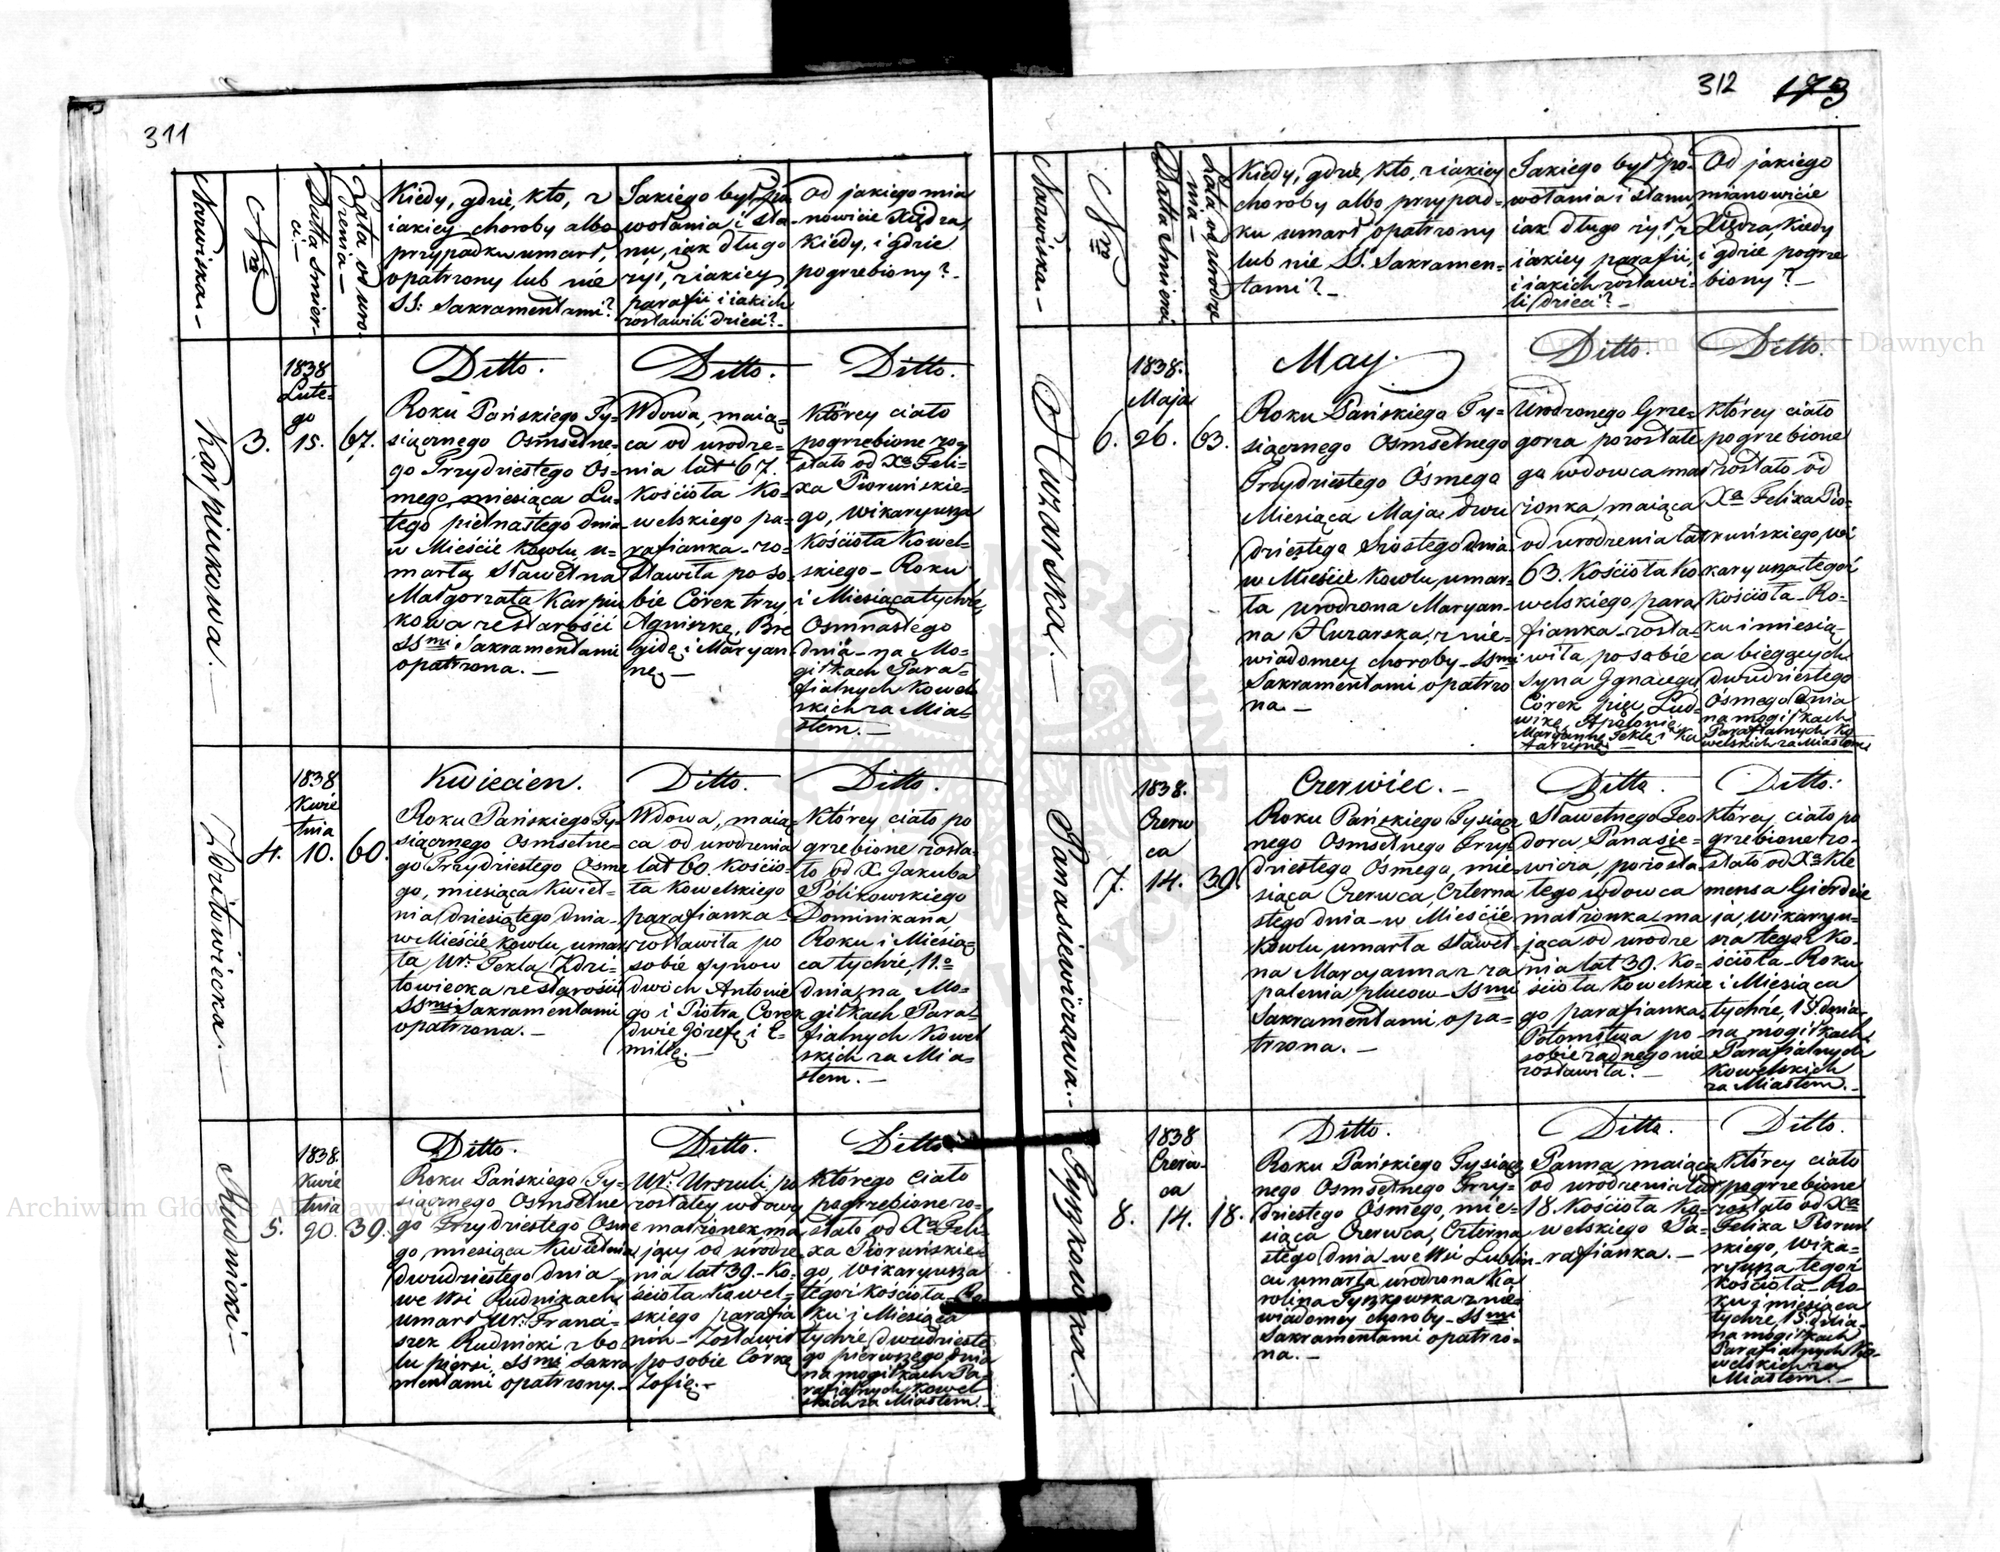 311
Nazwiska. —
Nro
Datta śmier-
ci. —
Lata od uro-
dzenia —
Kiedy, gdzie, kto, z
iakiey choroby albo
przypadku umarł,
opatrzony lub nie
SS: Sakramentami?
Jakiego był po
wołania i sta-
nu, jak długo
żył, z iakiey
parafii i iakich
zostawili dzieci? —
Od jakiego mia
nowicie Xiędza,
kiedy, i gdzie
pogrzebiony? —
Karpiukowa. —
3.
1838
Lute-
go
15.
67.
Ditto.
Roku Pańskiego Ty-
siącznego Osmsetne-
go Trzydziestego Os-
mego, miesiąca Lu-
tego piętnastego dnia
w Mieście Kowlu u-
marła Sławetna
Małgorzata Karpiu
kowa ze starości
SSmi Sakramentami
opatrzona. —
Ditto.
Wdowa, maią-
ca od urodze-
nia lat 67.
Kościoła Ko-
welskiego pa-
rafianka - zo-
stawiła po so
bie Córek trzy
Agniszkę, Bry
gidę i Maryan
nę. —
Ditto.
Którey ciało
pogrzebione zo-
stało od Xa Feli-
xa Pioruńskie-
go, wikaryusza
Kościoła Kowel-
skiego — Roku
i Miesiąca tychże,
Osmnastego
dnia - na Mo-
giłkach Para-
fialnych Kowel
skich za Mia-
stem. —
Zdzitowiecka. —
4.
1838
Kwie
tnia
10.
60.
Kwiecien.
Roku Pańskiego Ty-
siącznego Osmsetne-
go Trzydziestego Osme
go, miesiąca Kwiet-
nia dziesiątego dnia -
w Mieście Kowlu, umar
ła Ur. Tekla Zdzi-
towiecka ze starości
SSmi Sakramentami
opatrzona. —
Ditto.
Wdowa, maią
ca od urodzenia
lat 60. Kościo-
ła Kowelskiego
parafianka -
zostawiła po
sobie Synow
dwóch Antonie
go i Piotra, Corek
dwie Józefę i E-
milię. —
Ditto.
Którey ciało po
grzebione zosta-
ło od X. Jakuba
Polikowskiego
Dominikana
Roku i Miesią-
ca tychże 11.o
dnia, na Mo-
giłkach Para-
fialnych Kowel
skich za Mia-
stem. —
Rudnicki —
5.
1838.
Kwie
tnia
20.
39.
Ditto.
Roku Pańskiego Ty-
siącznego Osmsetne
go Trzydziestego Osme
go, miesiąca Kwietnia
dwudziestego dnia -
we Wsi Rudnikach
umarł Ur. Franci-
szek Rudnicki z bo-
lu piersi, SSmi Sakra
mentami opatrzony. —
Ditto.
Ur. Urszuli po
zostałey wdowy
małżonek ma
jący od urodze
nia lat 39. - Ko-
ścioła Kowel-
skiego parafia
nin - Zostawił
po sobie Córkę
Zofię. —
Ditto
Którego ciało
pogrzebione zo-
stało od Xa Feli-
xa Pioruńskie-
go, Wikaryusza
tegoż Kościoła - Ro
ku i Miesiąca
tychże dwudzieste
go pierwszego dnia
na mogiłkach Pa-
rafialnych Kowel
skich za Miastem. —
312
173
Nazwiska. —
Nro
Datta śmierci
Lata od urodze
nia —
Kiedy, gdzie, kto, z iakiey
choroby albo przypad-
ku umarł opatrzony
lub nie SS. Sakramen-
tami? —
Jakiego był po-
wołania i stanu,
iak długo żył, z
iakiey parafii,
i iakich zostawi-
li dzieci? —
Od jakiego
mianowicie
Xiędza, kiedy
i gdzie pogrze
biony? —
Huzarska. —
6.
1838.
Maja
26.
63.
May.
Roku Pańskiego Ty-
siącznego Osmsetnego
Trzydziestego Ósmego
Miesiąca Maja dwu
dziestego szóstego dnia
w Mieście Kowlu, umar-
ła urodzona Maryan-
na Huzarska, z nie-
wiadomey choroby - SSmi
Sakramentami opatrzo
na. —
Ditto.
Urodzonego Grze-
gorza pozostałe
go wdowca mał
żonka, maiąca
od urodzenia lat
63. Kościoła Ko
welskiego, para
fianka - zosta-
wiła po sobie
Syna Ignacego
Córek pięć, Lud-
wikę, Apolonię,
Maryannę, Teklę i Ka
tarzynę —
Ditto.
Którey ciało
pogrzebione
zostało od
Xa Felixa Pio-
ruńskiego, wi
karyusza tegoż
Kościoła - Ro-
ku i miesią-
ca bieżących
dwudziestego
ósmego dnia
na mogiłkach
Parafialnych Ko
welskich za Miastem
Panasiewiczowa. —
7.
1838.
Czerw
ca
14.
39.
Czerwiec. —
Roku Pańskiego Tysiącz
nego Osmsetnego Trzy-
dziestego Osmego, mie-
siąca Czerwca, Czterna
stego dnia - w Mieście
Kowlu umarła Sławet-
na Maryanna z za
palenia płucow - SSmi
Sakramentami, opa-
trzona. —
Ditto.
Sławetnego Teo
dora Panasie-
wicza, pozosta-
łego wdowca
małżonka, ma
jąca od urodze
nia lat 39. Ko-
ścioła Kowelskie
go parafianka.
Potomstwa po
sobie żadnego nie
zostawiła. —
Ditto.
Którey ciało po
grzebione zo-
stało od Xa Kle
mensa Gierdzie
ja, wikaryu-
sza tegoż Ko-
ścioła - Roku
i Miesiąca
tychże, 15. dnia
na mogiłkach
Parafialnych
Kowelskich
za Miastem. —
Tyszkowska. —
8.
1838
Czerw-
ca
14.
18.
Ditto.
Roku Pańskiego Tysiącz
nego Osmsetnego Trzy-
dziestego Osmego, mie-
siąca Czerwca, Czterna
stego dnia - we Wsi Lublin-
cu umarła urodzona Ka
rolina Tyszkowska z nie-
wiadomey choroby - SSmi
Sakramentami opatrzo-
na. —
Ditto.
Panna, maiąca
od urodzenia lat
18. Kościoła Ko-
welskiego Pa-
rafianka. —
Ditto.
Którey ciało
pogrzebione
zostało od Xa
Felixa Pioruń
skiego, Wika-
ryusza tegoż
Kościoła - Ro-
ku i miesiąca
tychże, 15. dnia
na mogiłkach
Parafialnych Ko-
welskich za
Miastem. —